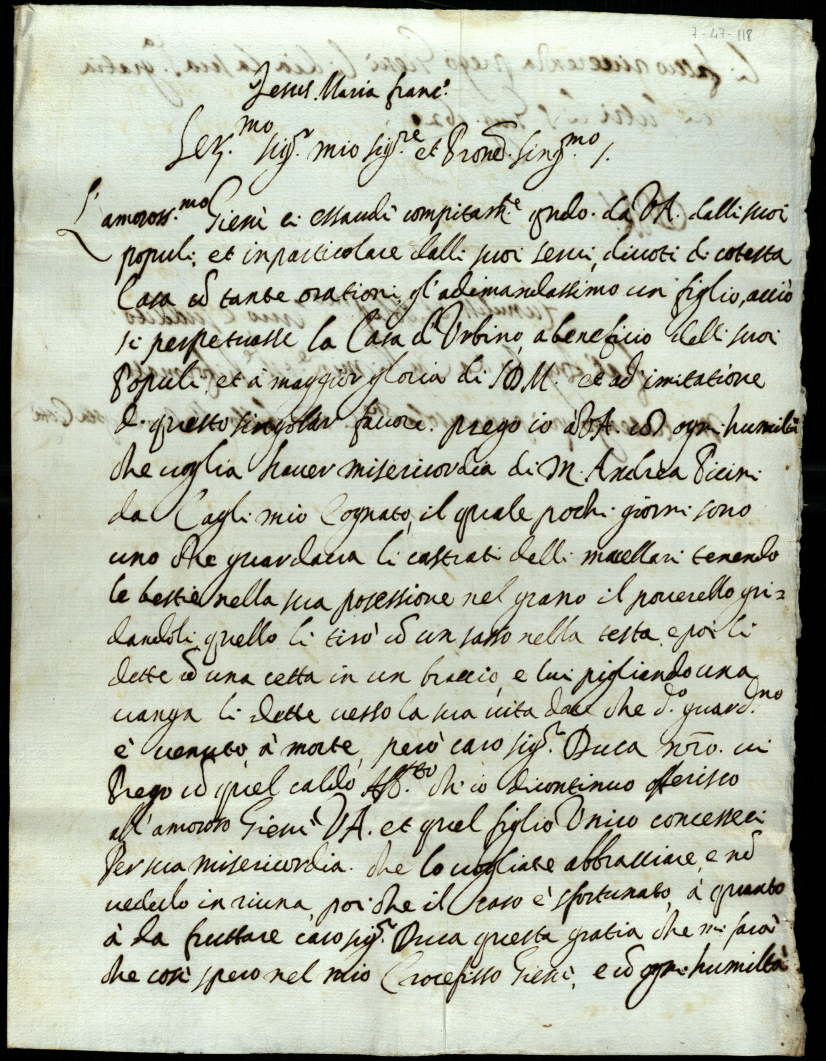 7-47-118
Jesus. Maria franc.º
Ser.mo sig.r mio sig.re et Prone sing.mo /.
L'amoross.mo Giesù ci essaudì compitamte qndo. da VA. dalli suoi
populi, et in particolare dalli suoi servi, divoti di cotesta
Casa cō tante orationi gl'adimandassimo un figlio, acciò
si perpetuasse la Casa d'Urbino, a beneficio delli suoi
Populi, et à maggior gloria di SDM. et ad imitatione
di questo singolar favore. prego io VA. cō ogni humiltà
che voglia haver misericordia di M. Andrea Picini
da Cagli mio Cognato, il quale pochi giorni sono
uno che guardava li castrati delli macellari tenendo
le bestie nella sua posessione nel grano il poverello gri=
dandoli, quello li tirò cō un sasso nella testa, e poi li
dette cō una cetta in un braccio, e lui pigliando una
vanga li dette verso la sua vita che d.o guard.no
è venuto à morte, però caro sig.r Duca nrō. vi
Prego cō quel caldo Aff.tto ch'io di continuo offerisco
all'amoroso Giesù VA. et quel figlio Unico concesseci
Per sua misericordia. che lo vogliate abbracciare, e nō
vederlo in riuna, poi che il caso è sfortunato, à quanto
à da fruttare caro sig.r Duca questa gratia che mi farà
che così spero nel mio Crocefisso Giesù, e cō ogni humiltà